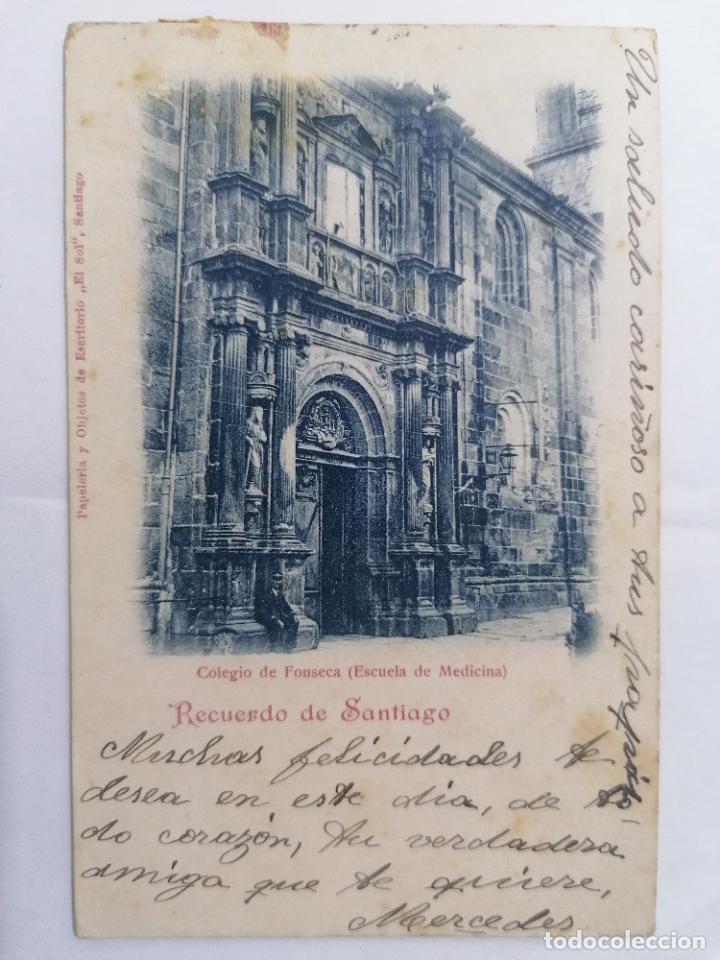 Papeleria y Objetos de Escritorio „El Sol“, Santiago
Colegio de Fonseca (Escuela de Medicina)
Recuerdo de Santiago
Muchas felicidades te
desea en este dia, de to-
do corazón, tu verdadera
amiga que te quiere,
Mercedes
Un saludo cariñoso a tus papás
todocoleccion.net